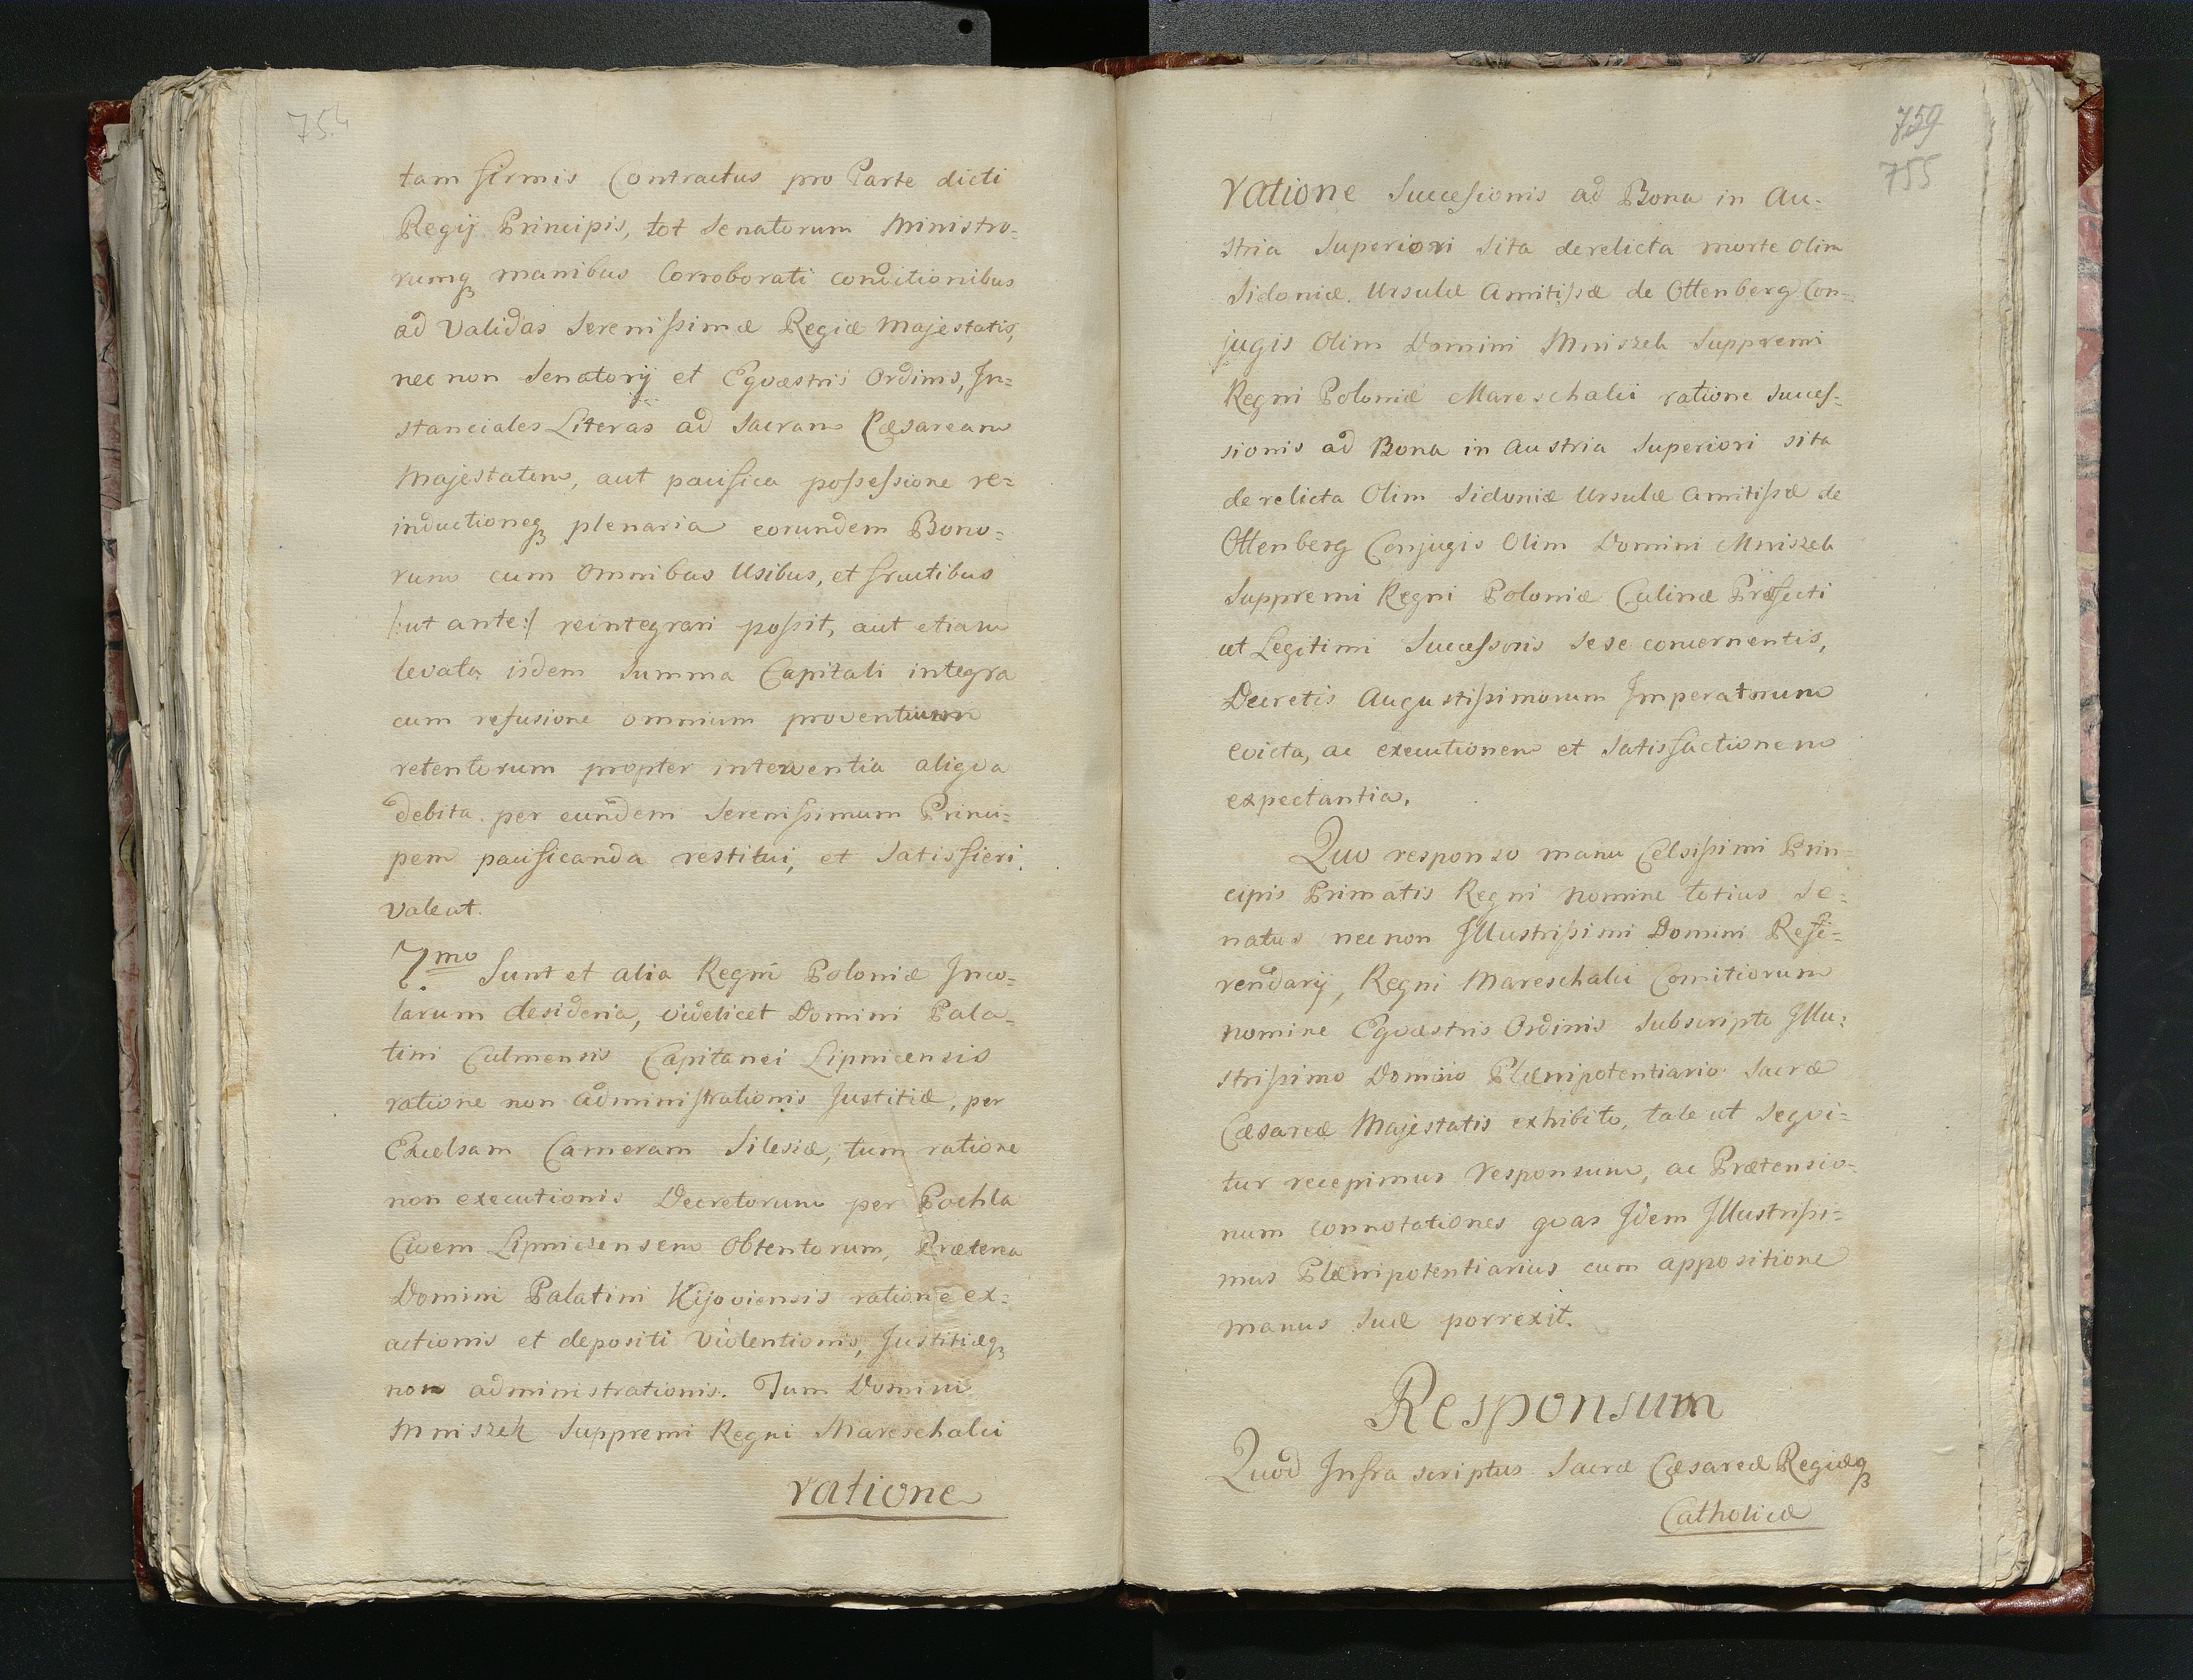 754
tam firmis Contractus pro Parte dicti
Regij Principis, tot Senatorum Ministro=
rumq3 manibus Corroborati conditionibus
ad validas Serenissimæ Regiæ Majestatis,
nec non Senatorij et Eqvæstris Ordinis, In=
stanciales Literas ad Sacram Cæsaream
Majestatem, aut pacifica possessione re=
inductioneq3 plenaria eorundem Bono=
rum cum omnibus Usibus, et fructibus
/:ut ante:/ reintegrari possit, aut etiam
levata iisdem Summa Capitali integra
cum refusione omnium proventuum
retentorum propter interventia aliqva
debita per eundem Serenissimum Princi=
pem pacificanda restitui, et Satisfieri
valeat.
7mo. Sunt et alia Regni Poloniæ Inco=
larum desideria, videlicet Domini Pala=
tini Culmensis Capitanei Lipnicensis
ratione non administrationis Justitiæ, per
Excelsam Cameram Silesiæ, tum ratione
non executionis Decretorum per Pochla
Civem Lipnicensem Obtentorum, Præterea
Domini Palatini Kijoviensis ratione ex=
actionis et depositi violentionis, Justitiæq3
non administrationis. Tum Domini
Mniszek Suppremi Regni Mareschalci
ratione
759
755
ratione Successionis ad Bona in Au=
stria Superiori Sita derelicta morte olim
Sidoniæ Ursulæ Comitissæ de Ottenberg Con=
jugis Olim Domini Mniszek Suppremi
Regni Poloniæ Mareschalci ratione Succes=
sionis ad Bona in Austria Superiori sita
derelicta Olim Sidoniæ Ursulæ Comitissæ de
Ottenberg Conjugis Olim Domini Mniszek
Suppremi Regni Poloniæ Culinæ Præfecti
ut Legitimi Successoris Sese concernentis,
Decretis Augustissimorum Imperatorum
evicta, ac executionem et Satisfactionem
expectantia.
Quo responso manu Celsissimi Prin=
cipis Primatis Regni nomine totius Se=
natus nec non Illustrissimi Domini Refe=
rendarij, Regni Mareschalci Comitiorum
nomine Eqvæstris Ordinis Subscripto Illu=
strissimo Domino Plænipotentiario Sacræ
Cæsareæ Majestatis exhibito, tale ut Seqvi=
tur recepimus responsum, ac Prætensio=
num connotationes qvas Idem Illustrissi=
mus Plænipotentiarius cum appositione
manus Suæ porrexit.
Responsum
Quod Infra scriptus Sacræ Cæsareæ Regiæq3
Catholicæ